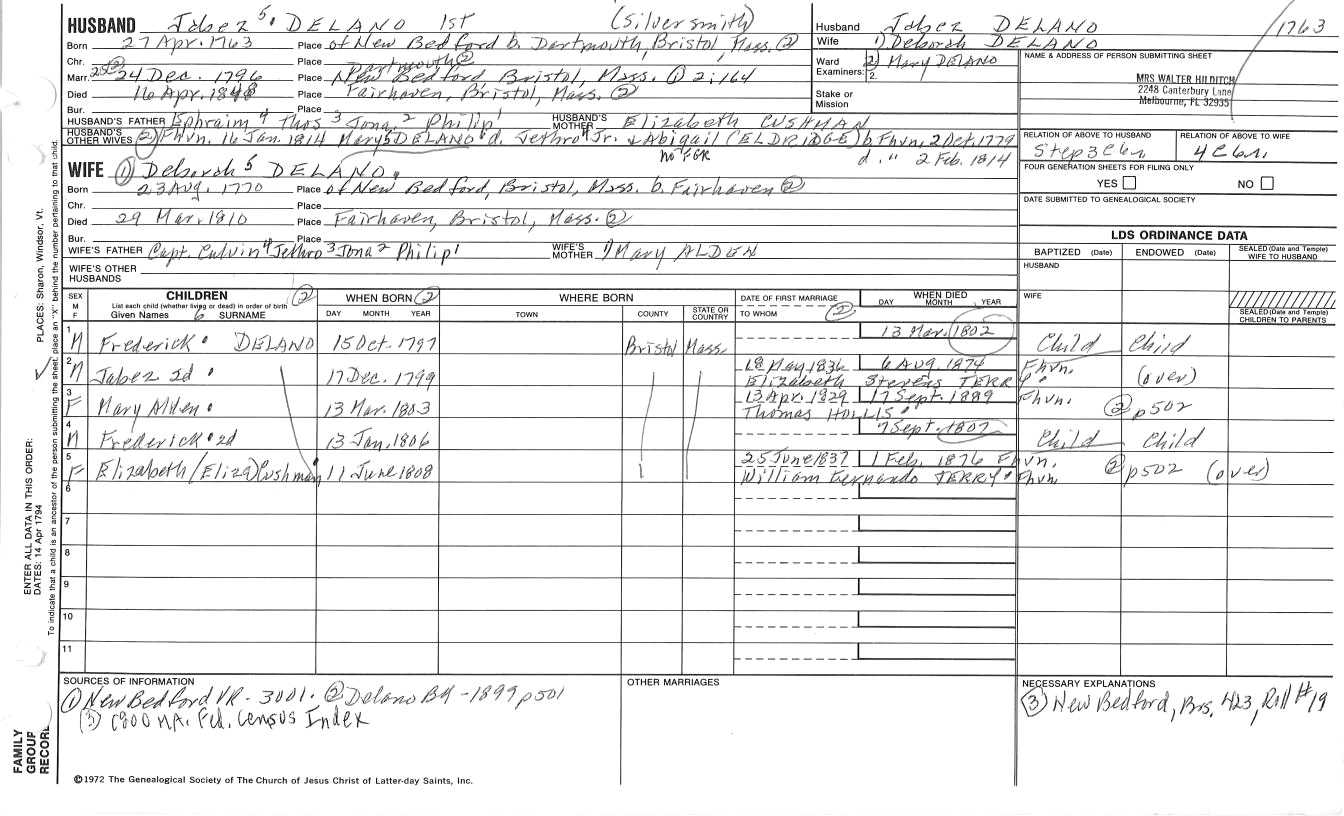 HUSBAND Jabez 5. DELANO 1ST (Silversmith)
Born 27 Apr. 1763 Place of New Bedford b. Dartmouth, Bristol, Mass. (2)
Chr. Place Dartmouth (2)
Marr. 25(2) 24 Dec. 1796 Place New Bedford, Bristol, Mass. (1) 2:164
Died 16 Apr. 1848 Place Fairhaven, Bristol, Mass. (2)
Bur. Place
HUSBAND'S FATHER Ephraim 4 Thos 3 Jona. 2 Philip 1 HUSBAND'S MOTHER Elizabeth CUSHMAN
HUSBAND'S OTHER WIVES (2) Fhvn. 16 Jan. 1814 Mary 5 DELANO d. Jethro 4 Jr. & Abigail (ELDRIDGE) b Fhvn, 2 Oct. 1779
no FGR d. " 2 Feb. 1814
Husband Jabez DELANO 1763
Wife 1) Deborah DELANO
2) Mary DELANO
Ward Examiners: 1. 2.
Stake or Mission
NAME & ADDRESS OF PERSON SUBMITTING SHEET
MRS WALTER HILDITCH
2248 Canterbury Lane
Melbourne, FL 32935
RELATION OF ABOVE TO HUSBAND RELATION OF ABOVE TO WIFE
Step 3C6r 4C6r.
FOUR GENERATION SHEETS FOR FILING ONLY
YES NO
DATE SUBMITTED TO GENEALOGICAL SOCIETY
WIFE (1) Deborah 5 DELANO.
Born 23 Aug. 1770 Place of New Bedford, Bristol, Mass. b. Fairhaven (2)
Chr. Place
Died 29 Mar. 1810 Place Fairhaven, Bristol, Mass. (2)
Bur. Place
WIFE'S FATHER Capt. Calvin 4 Jethro 3 Jona 2 Philip 1 WIFE'S MOTHER 1) Mary ALDEN
WIFE'S OTHER HUSBANDS
LDS ORDINANCE DATA
BAPTIZED (Date) ENDOWED (Date) SEALED (Date and Temple) WIFE TO HUSBAND
HUSBAND
WIFE
SEALED (Date and Temple) CHILDREN TO PARENTS
SEX M F CHILDREN (2) List each child (whether living or dead) in order of birth Given Names 6 SURNAME
WHEN BORN (2) DAY MONTH YEAR
WHERE BORN TOWN COUNTY STATE OR COUNTRY
DATE OF FIRST MARRIAGE (2) TO WHOM
WHEN DIED DAY MONTH YEAR
1 M Frederick. DELANO 15 Oct. 1797 Bristol Mass. 13 Mar. 1802 Child Child
2 M Jabez 2d. 17 Dec. 1799 18 May 1836 6 Aug. 1874 Fhvn. (over)
Elizabeth Stevens TERRY.
3 F Mary Alden. 13 Mar. 1803 13 Apr. 1829 17 Sept. 1889 Fhvn. (2) p502
Thomas HOLLIS.
4 M Frederick. 2d 13 Jan. 1806 7 Sept. 1807 Child Child
5 F Elizabeth/(Eliza) Cushman 11 June 1808 25 June 1837 1 Feb. 1876 Fhvn. (2) p502 (over)
William Fernando TERRY. Fhvn.
6
7
8
9
10
11
SOURCES OF INFORMATION
(1) New Bedford VR - 3001. (2) Delano BH - 1899 p501
(3) 1800 MA. Fed. Census Index
OTHER MARRIAGES
NECESSARY EXPLANATIONS
(3) New Bedford, Brs. 423, Roll #19
©1972 The Genealogical Society of The Church of Jesus Christ of Latter-day Saints, Inc.
FAMILY GROUP RECORD
ENTER ALL DATA IN THIS ORDER:
DATES: 14 Apr 1794
PLACES: Sharon, Windsor, Vt.
To indicate that a child is an ancestor of the person submitting the sheet, place an "X" behind the number pertaining to that child.